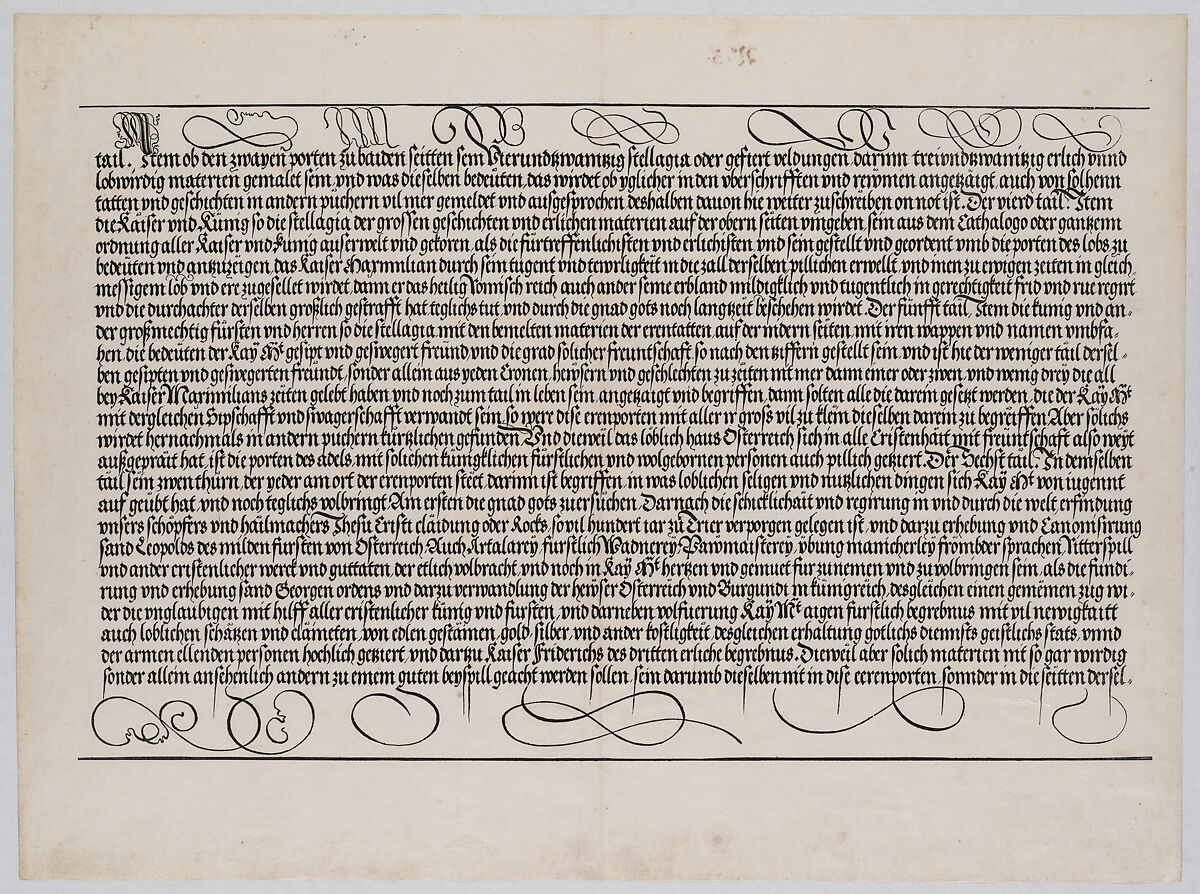 tail. Item ob den zwayen porten zu baiden seitten sein Vierundzwaintzig stellagia oder gefiert veldungen, darinn treiundzwaintzig erlich vnnd
lobwirdig materien gemalet sein, vnd was dieselben bedeüten, das wirdet ob yglicher in den vberschrifften vnd reymen angetzäigt, auch von solhenn
tatten vnd geschichten in andern püchern vil mer gemeldet vnd ausgesprochen, deshalben dauon hie weiter zu schreiben on not ist. Der vierd tail. Item
die Käiser vnd Künig so die stellagia der grossen geschichten vnd erlichen materien auf der obern seiten vmgeben, sein aus dem Cathalogo oder gantzenn
ordnung aller Kaiser vnd kunig auserwelt vnd gekoren, als die fürtreffenlichisten vnd erlichisten, vnd sein gestellt vnd geordent vmb die porten des lobs, zu
bedeüten vnd antzuzeigen, das Kaiser Maxmilian durch sein tugent vnd tewrligkeit in die zall derselben pillichen erwellt, vnd inen zu ewigen zeiten in gleich
messigem lob vnd ere zugesellet wirdet, dann er das heilig Romisch reich auch ander seine erbland mildigklich vnd tugentlich in gerechtigkeit frid vnd rue regirt
vnd die durchachter derselben großlich gestrafft hat, teglichs tut, vnd durch die gnad gots noch langtzeit beschehen wirdet. Der fünfft tail, Item die kunig vnd an-
der großmechtig fürsten vnd herren so die stellagia mit den bemelten materien der erentatten auf der indern seiten mit iren wappen vnd namen vmbfa-
hen, die bedeüten der Kay Mt gesipt vnd geswegert freund, vnd die grad solicher freuntschaft, so nach den ziffern gestellt sein, vnd ist hie der weniger täil dersel-
ben gesipten vnd geswegerten freündt, sonder allein aus yeden Cronen, hewsern vnd geschlechten zu zeiten mit mer dann einer oder zwen, vnd wenig drey die all
bey Kaiser Maximilians zeiten gelebt haben, vnd noch zum tail in leben sein, angetzäigt vnd begriffen, dann solten alle die darein gesetzt werden, die der Kay Mt
mit dergleichen Sipschafft vnd swagerschafft verwandt sein, so were dise erenporten mit aller ir groß vil zu klein dieselben darein zu begreiffen, Aber solichs
wirdet hernachmals in andern püchern kürtzlichen gefunden. Vnd dieweil das löblich haus Osterreich sich in alle Cristenhait mit freuntschaft also weyt
außgeprait hat, ist die porten des adels, mit solichen künigklichen fürstlichen vnd wolgebornen personen auch pillich getziert. Der Sechst tail. In demselben
tail sein zwen thürn, der yeder am ort der erenporten steet, darinn ist begriffen, in was loblichen seligen vnd nutzlichen dingen sich Kay Mt von iugennt
auf geübt hat, vnd noch teglichs volbringt, Am ersten die gnad gots zuersüchen, Darnach die schicklichait vnd regirung in vnd durch die welt, erfindung
vnsers schöpfers vnd hailmachers Jhesu Cristi claidung oder Rocks, so vil hundert iar zu Trier verporgen gelegen ist, vnd darzu erhebung vnd Canonisirung
sand Leopolds des milden fursten von Osterreich, Auch Artalarey, fürstlich Waidnerey, Pawmaisterey, vbung manicherley frömbder sprachen, Ritterspill
vnd ander cristenlicher werck vnd guttaten, der etlich volbracht, vnd noch in Kay Mt hertzen vnd gemuet fur zunemen vnd zu volbringen sein, als die fundi-
rung vnd erhebung sand Georgen ordens, vnd darzu verwandlung der hewser Osterreich vnd Burgundi in künigreich, desgleichen einen gemeinen zug wi-
der die vnglaubigen mit hilff aller cristenlicher künig vnd fürsten, vnd darneben volfuerung Kay Mt aigen fürstlich begrebnus mit vil newigkaitt
auch loblichen schätzen vnd claineten, von edlen gestainen, gold, silber, vnd ander kostligkeit, desgleichen erhaltung gotlichs diennsts geistlichs stats, vnnd
der armen ellenden personen hochlich getziert, vnd dartzu Kaiser Friderichs des dritten erliche begrebnus. Dieweil aber solich materien nit so gar wirdig
sonder allein ansehenlich andern zu einem guten beyspill geacht werden sollen, sein darumb dieselben nit in dise eerenporten, sonnder in die seitten dersel-